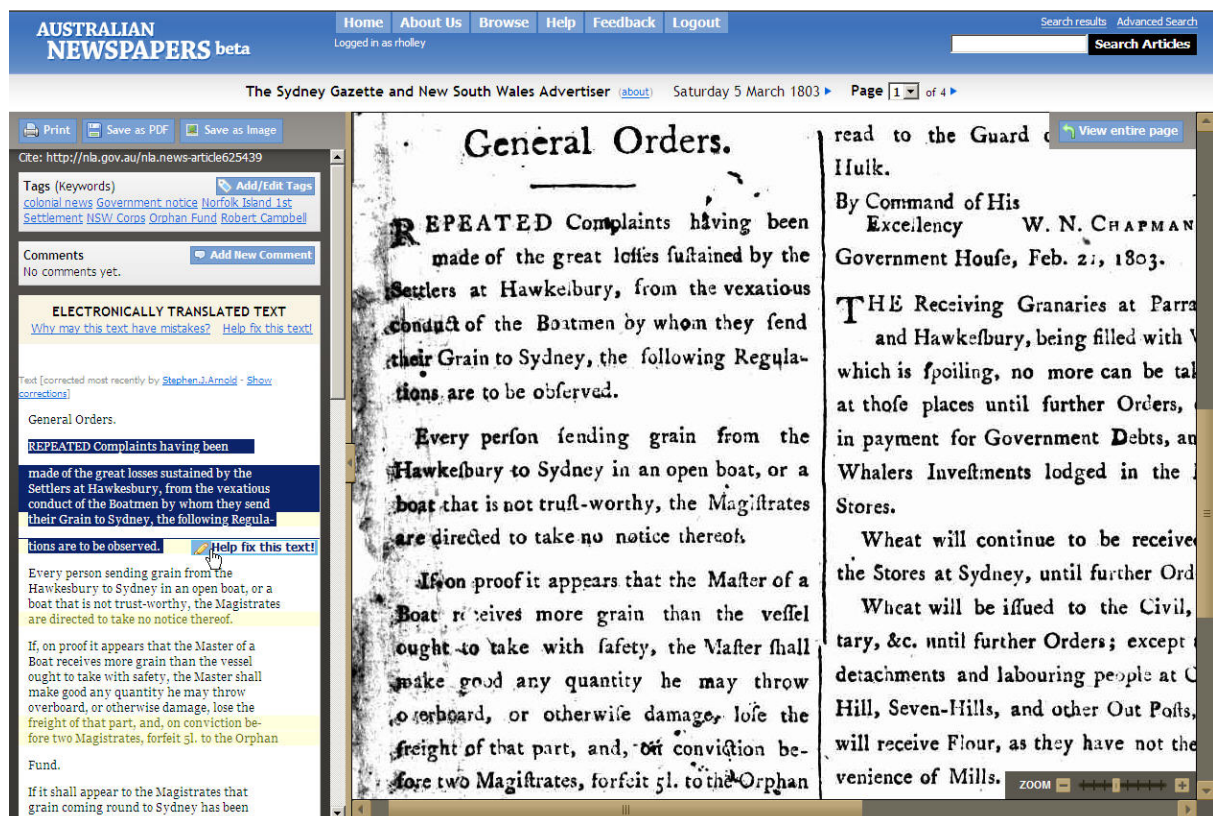 AUSTRALIAN
NEWSPAPERS beta
Home About Us Browse Help Feedback Logout
Logged in as rholley
Search results Advanced Search
Search Articles
The Sydney Gazette and New South Wales Advertiser (about) Saturday 5 March 1803 Page 1 of 4
Print Save as PDF Save as Image
Cite: http://nla.gov.au/nla.news-article625439
Tags (Keywords) Add/Edit Tags
colonial news Government notice Norfolk Island 1st
Settlement NSW Corps Orphan Fund Robert Campbell
Comments Add New Comment
No comments yet.
ELECTRONICALLY TRANSLATED TEXT
Why may this text have mistakes? Help fix this text!
Text [corrected most recently by Stephen.J.Arnold - Show
corrections]
General Orders.
REPEATED Complaints having been
made of the great losses sustained by the
Settlers at Hawkesbury, from the vexatious
conduct of the Boatmen by whom they send
their Grain to Sydney, the following Regula-
tions are to be observed. Help fix this text!
Every person sending grain from the
Hawkesbury to Sydney in an open boat, or a
boat that is not trust-worthy, the Magistrates
are directed to take no notice thereof.
If, on proof it appears that the Master of a
Boat receives more grain than the vessel
ought to take with safety, the Master shall
make good any quantity he may throw
overboard, or otherwise damage, lose the
freight of that part, and, on conviction be-
fore two Magistrates, forfeit 5l. to the Orphan
Fund.
If it shall appear to the Magistrates that
grain coming round to Sydney has been
General Orders.
REPEATED Complaints having been
made of the great loſſes ſuſtained by the
Settlers at Hawkeſbury, from the vexatious
conduct of the Boatmen by whom they ſend
their Grain to Sydney, the following Regula-
tions are to be obſerved.
Every perſon ſending grain from the
Hawkeſbury to Sydney in an open boat, or a
boat that is not truſt-worthy, the Magiſtrates
are directed to take no notice thereof.
If, on proof it appears that the Maſter of a
Boat receives more grain than the veſſel
ought to take with ſafety, the Maſter ſhall
make good any quantity he may throw
overboard, or otherwiſe damage, loſe the
freight of that part, and, on conviction be-
fore two Magiſtrates, forfeit 5l. to the Orphan
View entire page
read to the Guard
Hulk.
By Command of His
Excellency W. N. CHAPMAN
Government Houſe, Feb. 21, 1803.
THE Receiving Granaries at Parra
and Hawkeſbury, being filled with
which is ſpoiling, no more can be
at thoſe places until further Orders,
in payment for Government Debts, an
Whalers Inveſtments lodged in the
Stores.
Wheat will continue to be receive
the Stores at Sydney, until further Ord
Wheat will be iſſued to the Civil,
tary, &c. until further Orders; except
detachments and labouring people at C
Hill, Seven-Hills, and other Out Poſts,
will receive Flour, as they have not the
venience of Mills.
ZOOM